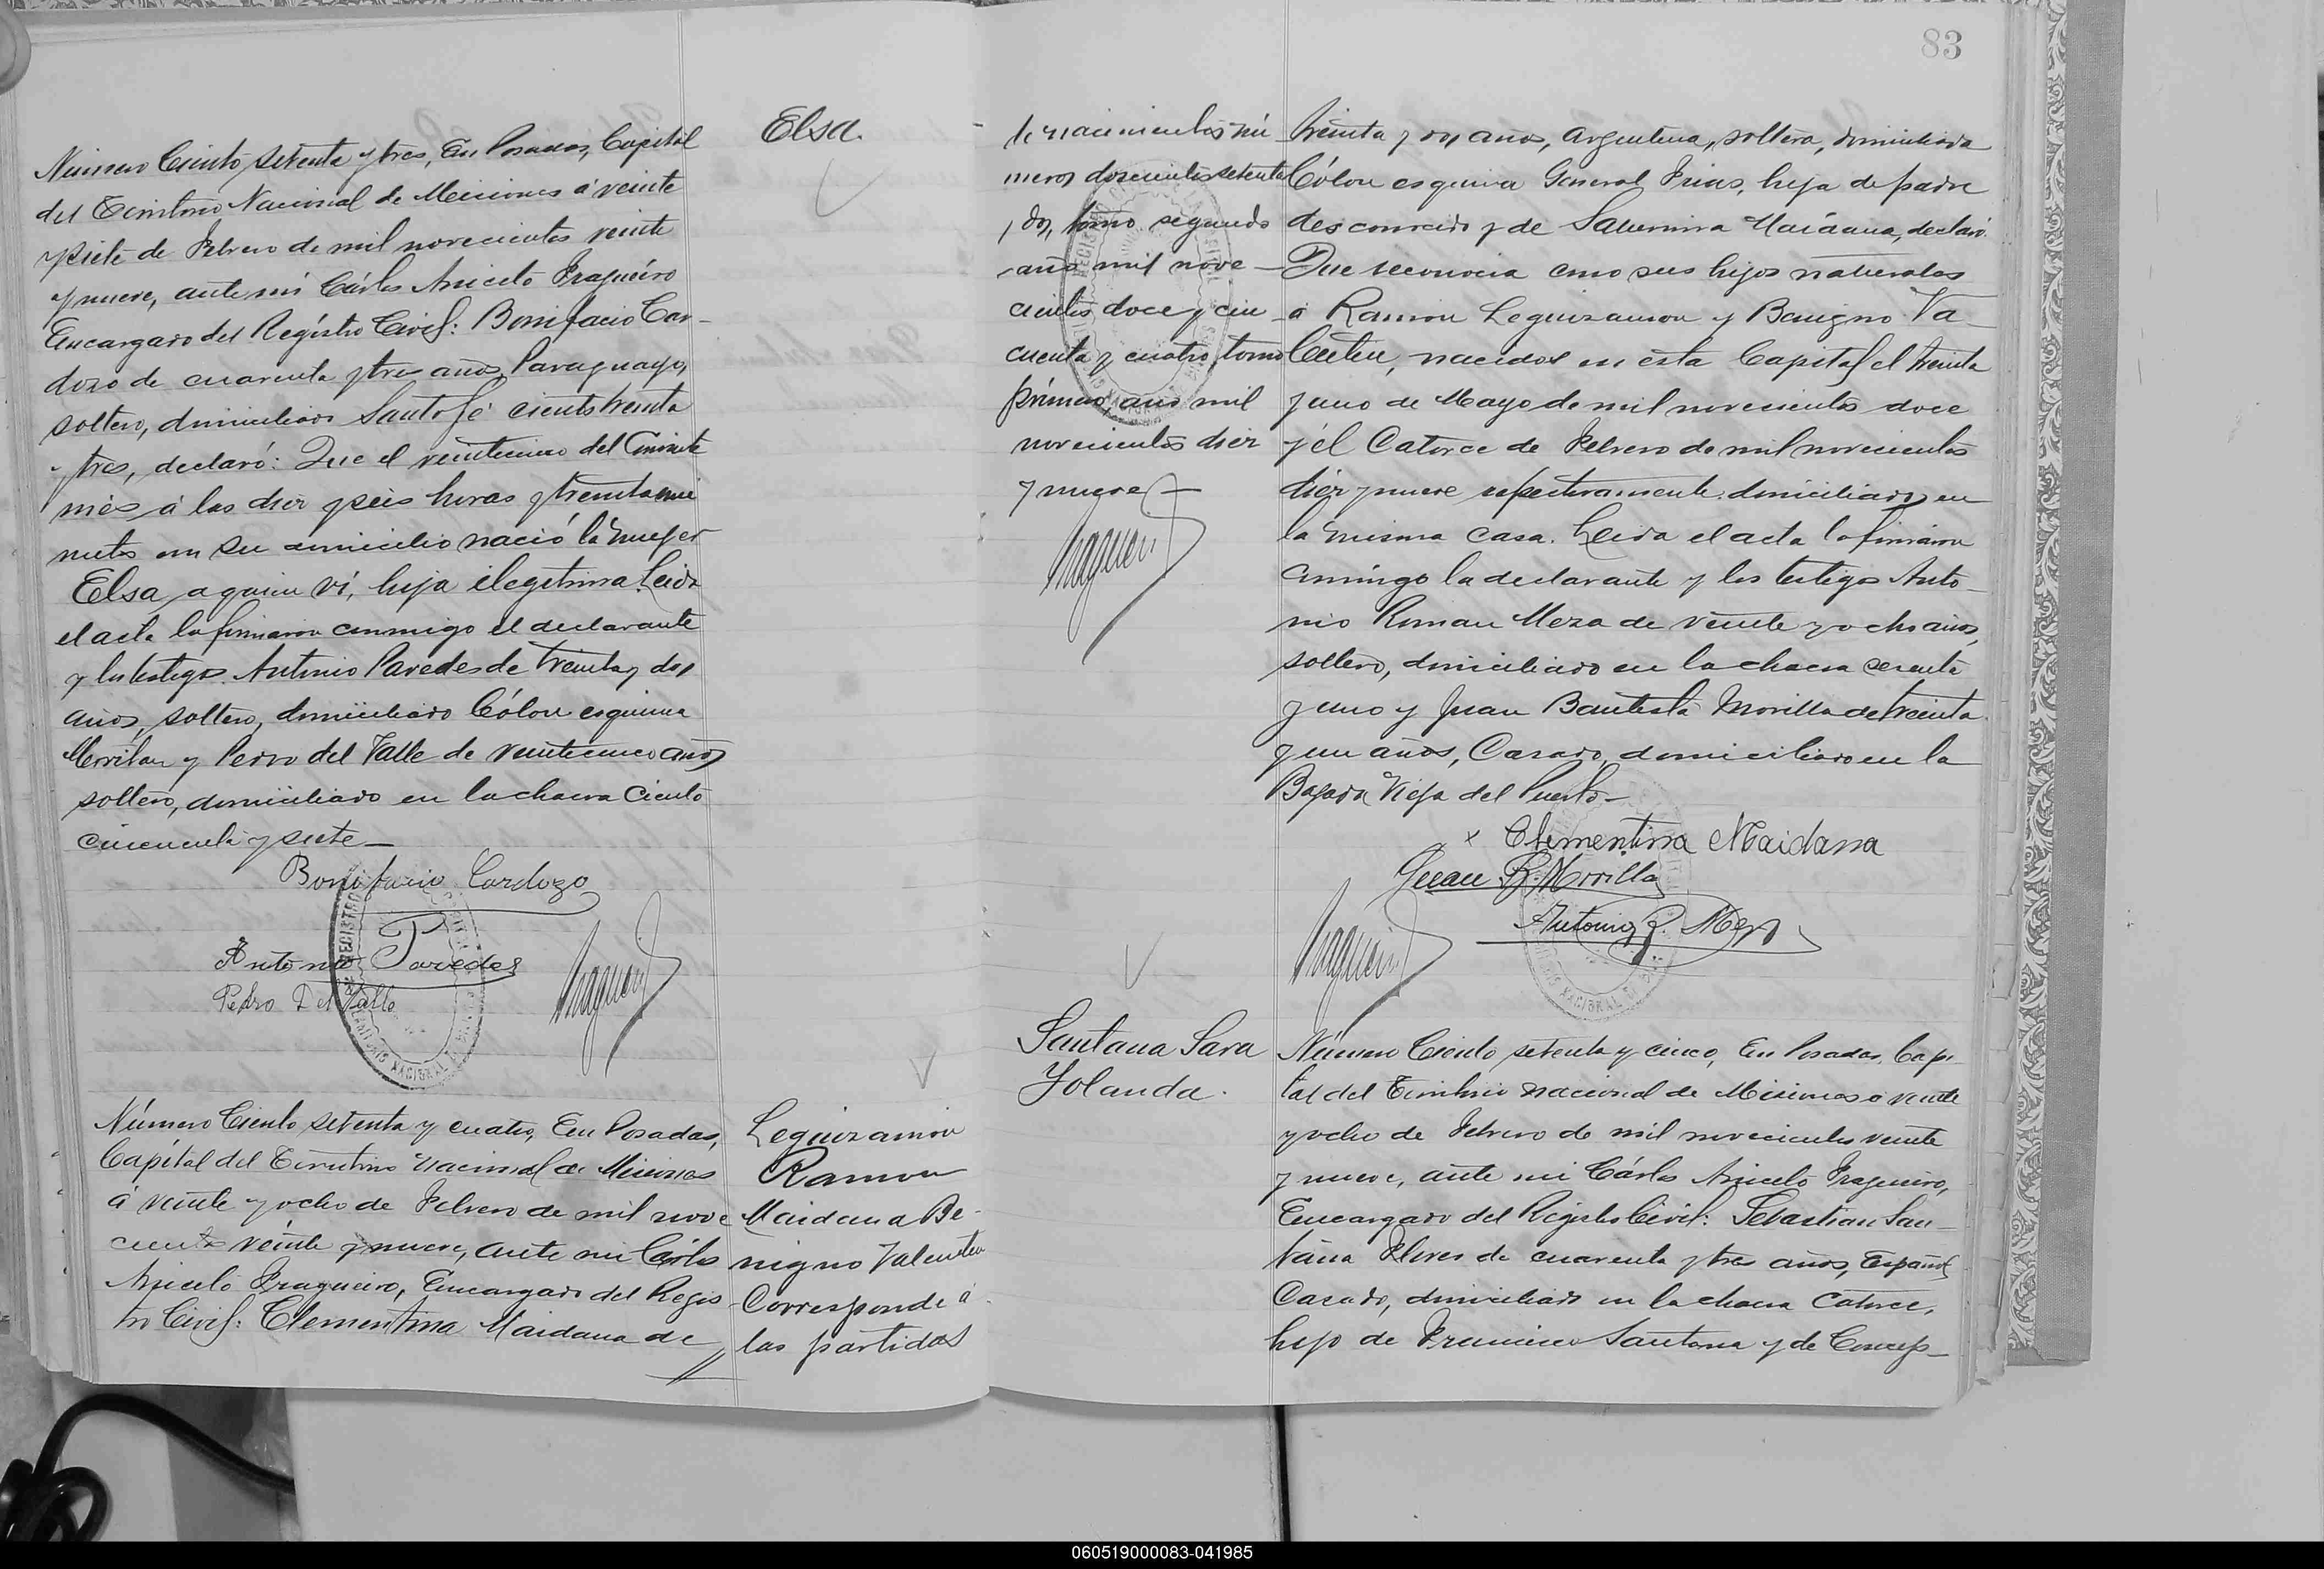 Número Ciento setenta y tres, En Posadas, Capital
del Territorio Nacional de Misiones á veinte
y siete de Febrero de mil novecientos veinte
y nueve, ante mi Cárlos Aniceto Fragueiro
Encargado del Registro Civil: Bonifacio Car-
dozo de cuarenta y tres años, Paraguayo,
soltero, domiciliado Santa Fé ciento treinta
y tres, declaró: Que el veinticinco del Corriente
mes á las diez y seis horas y treinta mi
nutos en su domicilio nació la mujer
Elsa, a quien ví, hija ilegitima. Leida
el acta la firmaron conmigo el declarante
y los testigos Antonio Paredes de treinta y dos
años, soltero, domiciliado Cólon esquina
Morilan y Pedro del Valle de veinticinco años
soltero, domiciliado en la chacra Ciento
cincuenta y siete_
Bonifacio Cardozo
Antonio Paredes
Pedro Del Valle
Elsa.
Número Ciento setenta y cuatro, En Posadas,
Capital del Territorio Nacional de Misiones
á veinte y ocho de Febrero de mil nove
cientos veinte y nueve, ante mi Cárlos
Aniceto Fragueiro, Encargado del Regis
tro Civil: Clementina Maidana de
Leguizamon
Ramon
Maidana Be-
nigno Valentin
Corresponde á
las partidas
83
de nacimientos nú
meros doscientos setenta
y dos, tomo segundo
año mil nove
cientos doce y cin
cuenta y cuatro, tomo
primero, año mil
novecientos diez
y nueve
treinta y dos años, Argentina, soltera, domiciliada
Cólon esquina General Frias, hija de padre
desconocido y de Saturnina Maidana, declaró:
Que reconocia como sus hijos naturales
á Ramon Leguizamon y Benigno Va
lentin, nacidos en esta Capital el treinta
y uno de Mayo de mil novecientos doce
y el Catorce de Febrero de mil novecientos
diez y nueve respectivamente, domiciliados en
la misma casa. Leida el acta la firmaron
conmigo la declarante y los testigos Anto-
nio Roman Meza de veinte y ocho años,
soltero, domiciliado en la chacra sesenta
y uno y Juan Bautista Morilla de treinta
y un años, Casado, domiciliado en la
Bajada Vieja del Puerto_
x Clementina Maidana
Juan B. Morilla
Antonio R. Meza
Santana Sara
Yolanda.
Número Ciento setenta y cinco, En Posadas, Capi
tal del Territorio Nacional de Misiones á veinte
y ocho de Febrero de mil novecientos veinte
y nueve, ante mi Cárlos Aniceto Fragueiro,
Encargado del Registro Civil: Sebastian San-
tana Flores de cuarenta y tres años, Español,
Casado, domiciliado en la chacra Catorce,
hijo de Francisco Santana y de Concep-
060519000083-041985